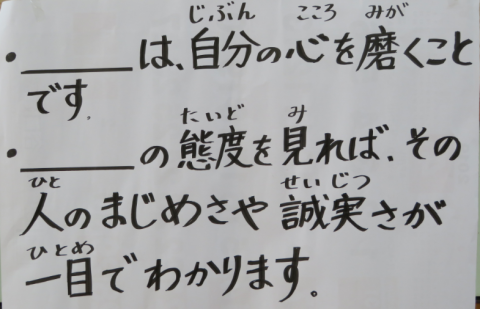 じぶん こころ みが
• ______ は、自分の心を磨くこと
です.
たいど み
• ______ の態度を見れば、その
ひと せいじつ
人のまじめさや誠実さが
ひとめ
一目でわかります。